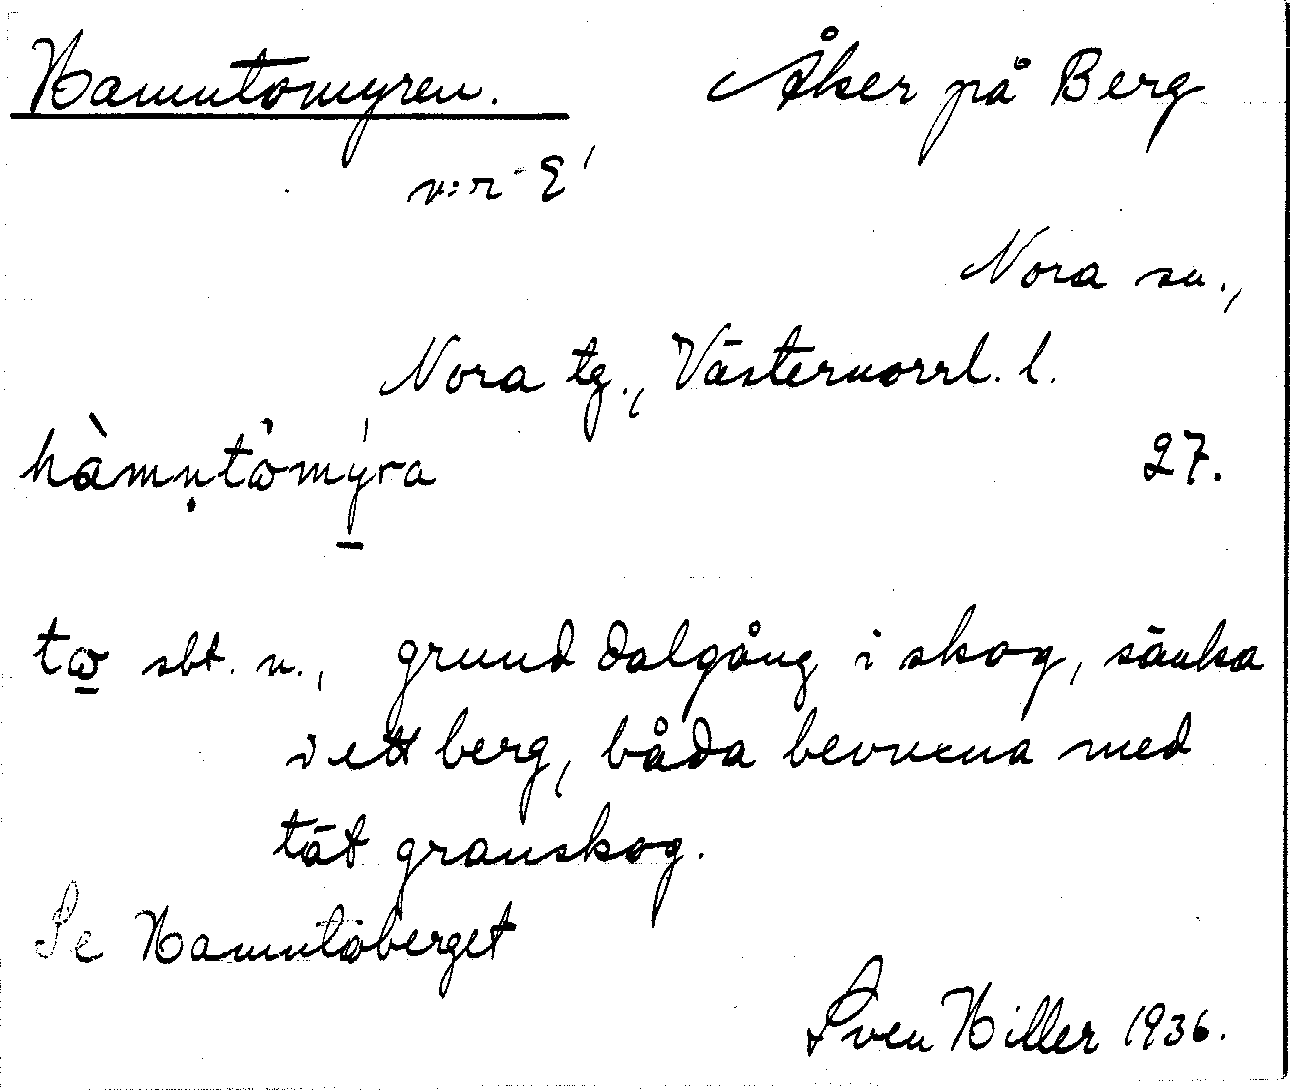 Hamntomyren. Åker på Berg
v:r - E'
Nora sn.,
Nora tg., Västernorrl. l.
hàmṇtὼmýra 27.
tω sbt. n., grund dalgång i skog, sänka
i ett berg, båda bevuxna med
tät granskog.
Se Hamntöberget
Sven Hiller 1936.